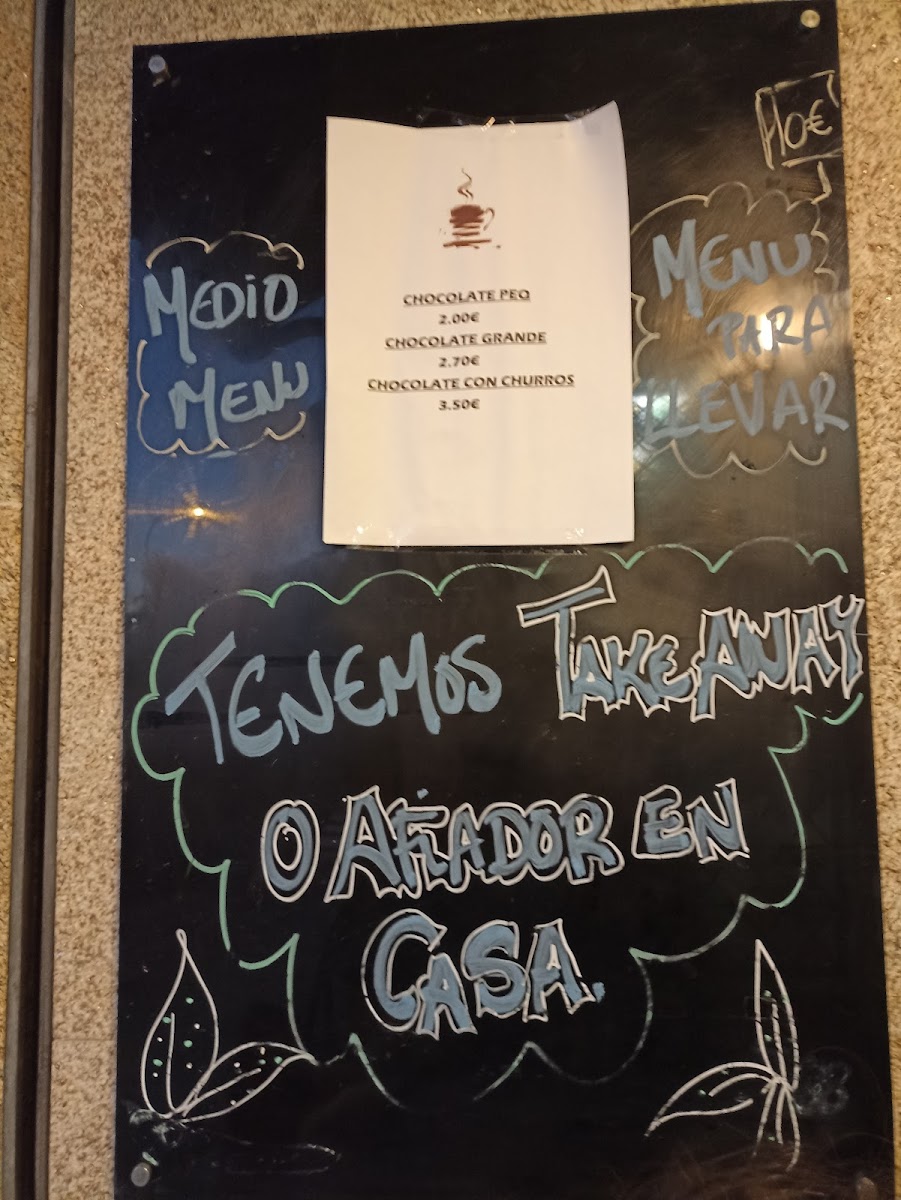 10€
MEDIO
MENU
CHOCOLATE PEQ
2.00€
CHOCOLATE GRANDE
2.70€
CHOCOLATE CON CHURROS
3.50€
MENU
PARA
LLEVAR
TENEMOS TAKE AWAY
O AFIADOR EN
CASA.